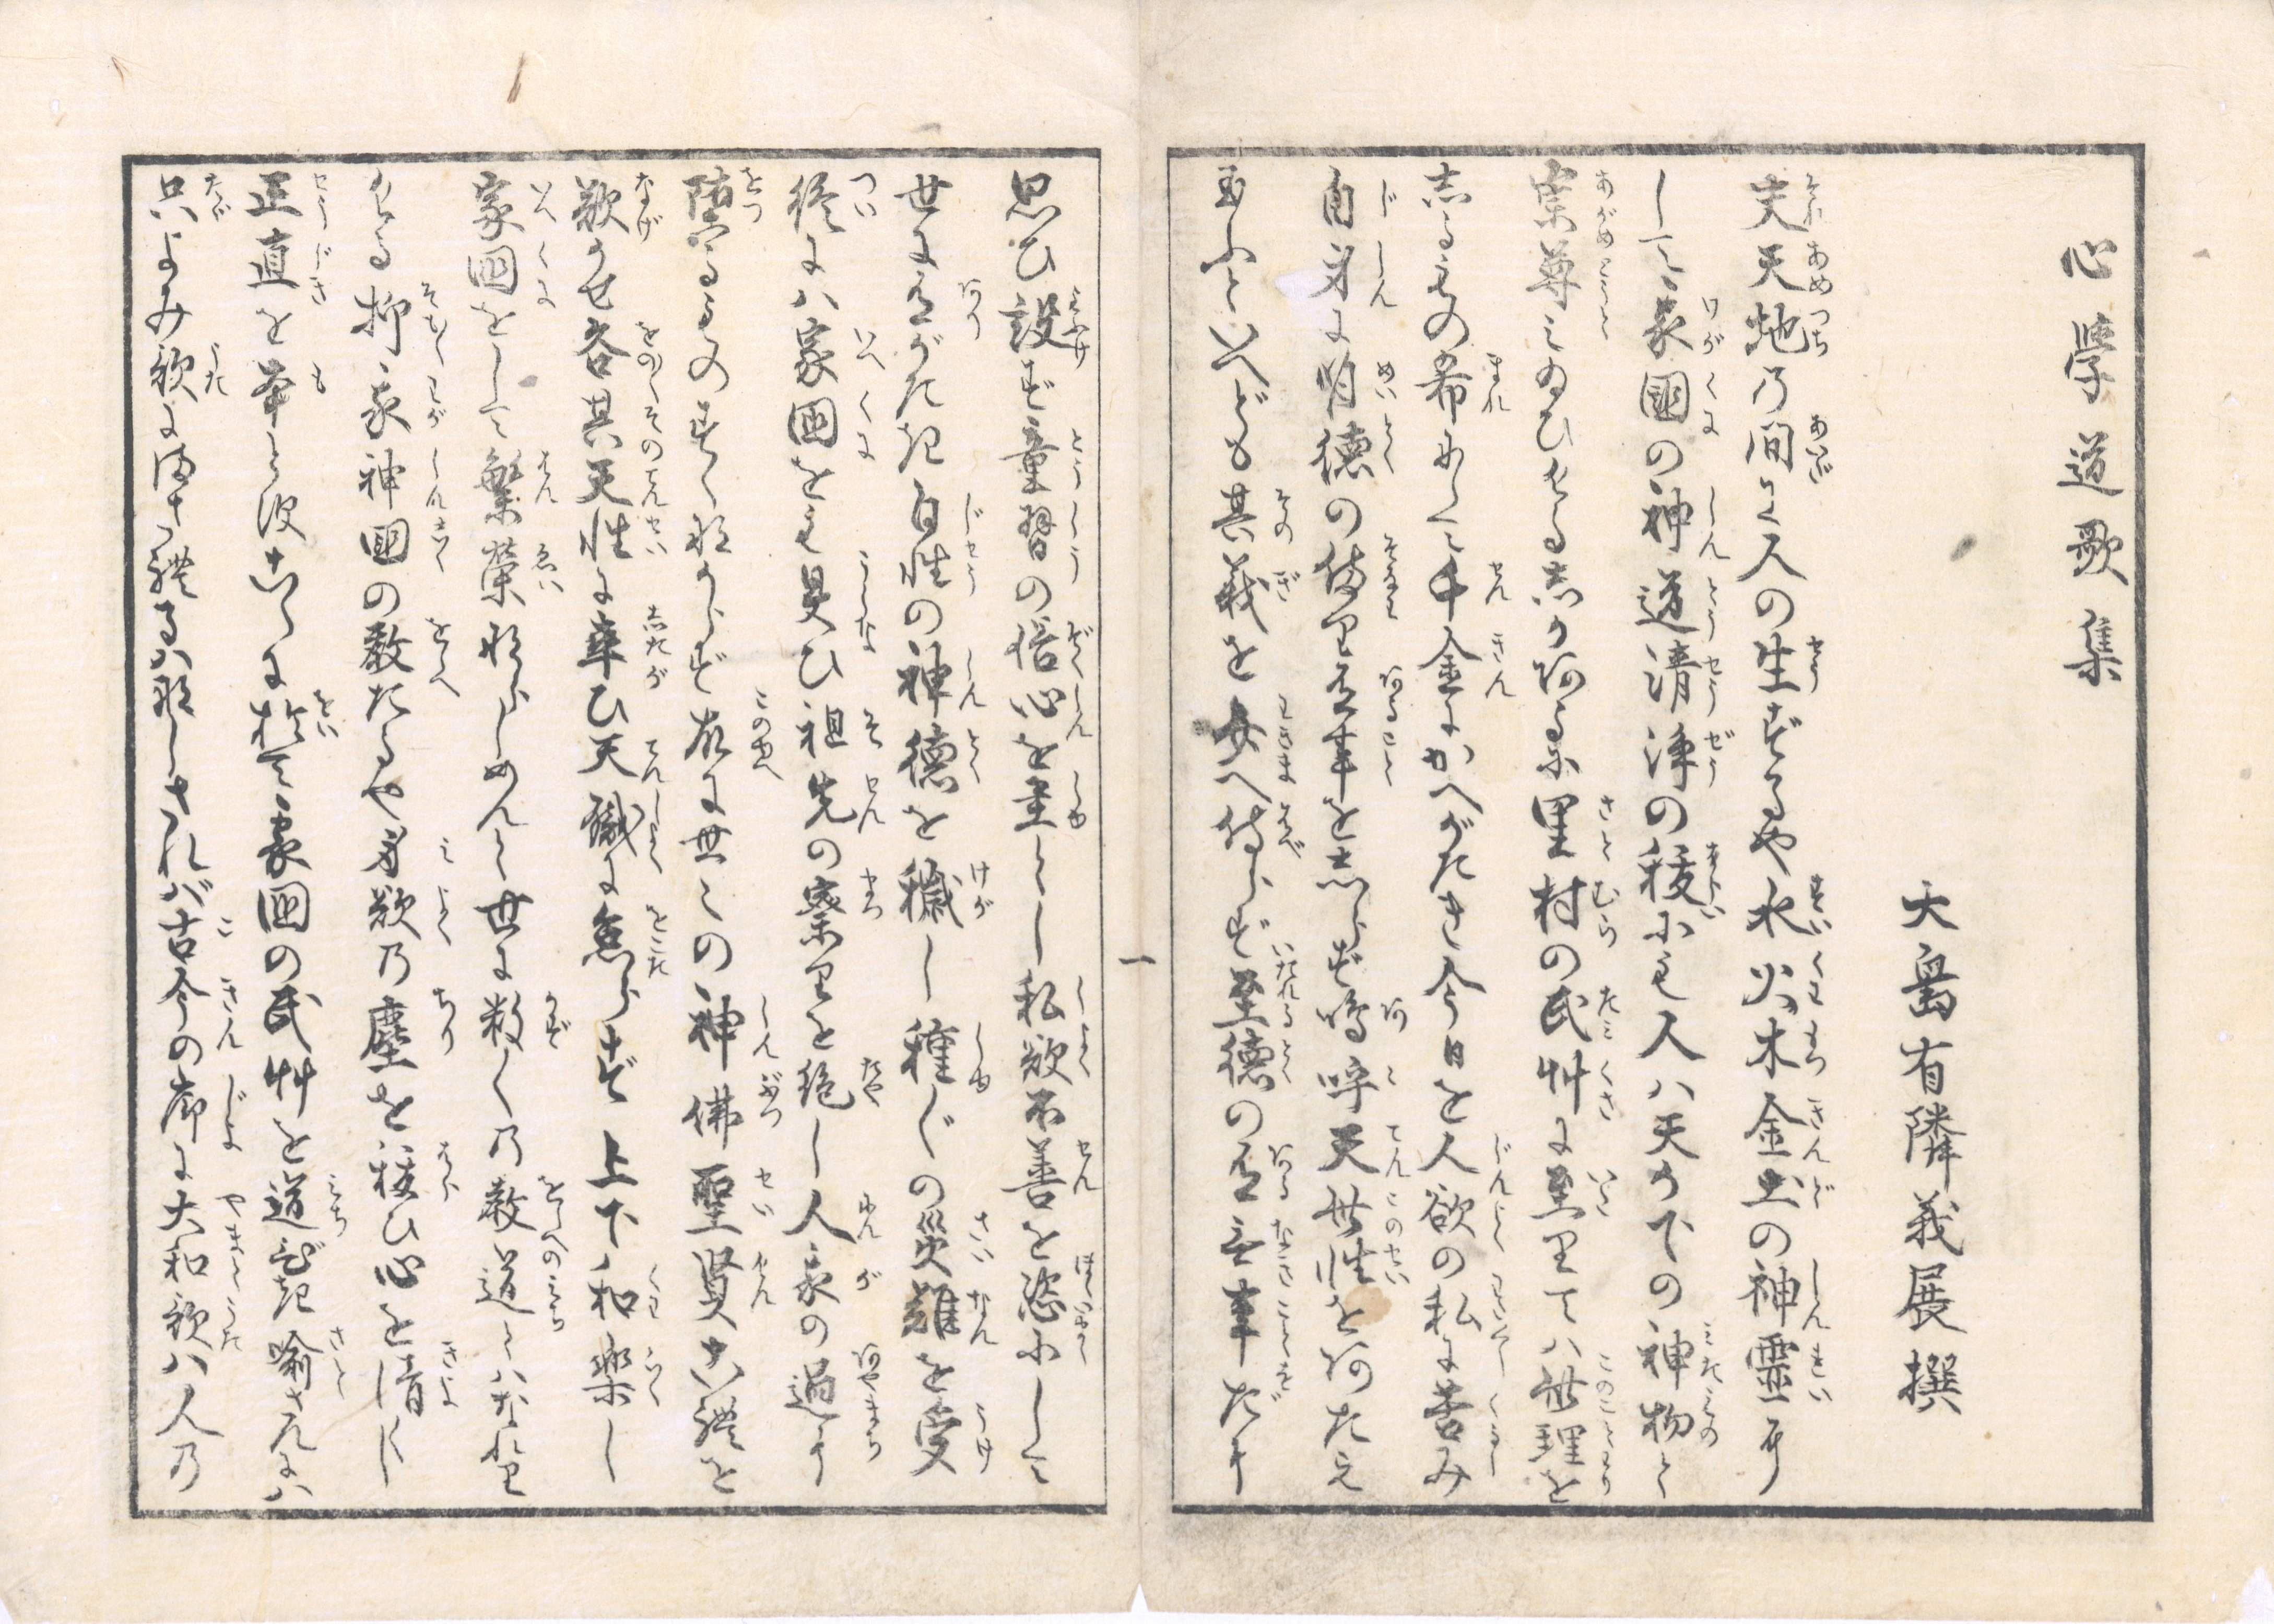 心學道歌集
大島有隣義展撰
夫天地乃間に人の生ずるや水火木金土の神靈より
して我國の神道清浄の祓にも人ハ天が下の神物と
崇尊ミ給ひけるしかあるに里村の民艸に至りてハ此理を
志るもの希にして千金にかへがたき今日を人欲の私に苦み
自身に明徳の備り有事を志らず嗚呼天此性をあたえ
玉ふといへども其義を弁へ侍らず至徳の有無事だに
思ひ設ず童習の俗心を主とし私欲不善を恣にして
世に有がたき自性の神徳を穢し種〴〵の災難を受
終にハ家国をも臾ひ祖先の祭りを絶し人我の過に
堕るもの少なからず故に世々の神佛聖賢これを
歎かせ各其天性に率ひ天職に怠らず上下和楽し
家國をして繁榮ならしめんと世に数〳〵の教道とハなれり
ける抑我神國の教たるや身欲乃塵を祓ひ心を清くし
正直を本と波しるに於て我國の民艸を道びき喩さんにハ
只よみ歌にまさるハなしされバ古今の序に大和歌ハ人乃